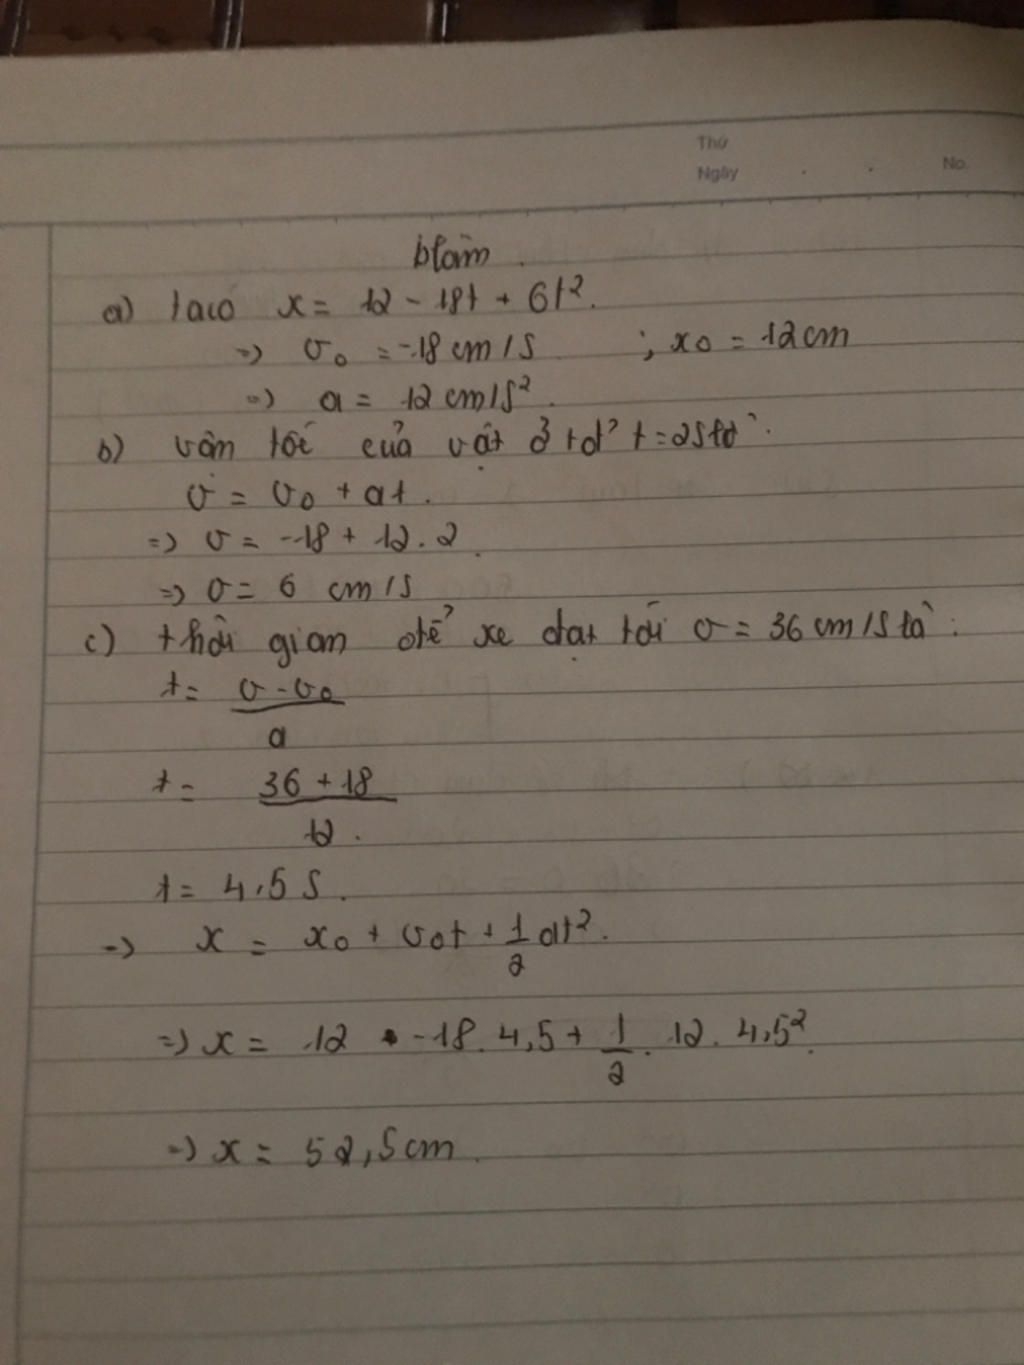 Thứ
Ngày . . No.
blàm
a) taco x = 12 - 18t + 6t².
=> v₀ = -18 cm/s ; x₀ = 12cm
=> a = 12 cm/s².
b) vận tốc của vật ở tđ² t=2s là:
v = v₀ + at.
=> v = -18 + 12.2
=> v = 6 cm/s
c) thời gian để xe đạt tới v = 36 cm/s là:
t = (v - v₀)/a
t = (36 + 18)/12.
t = 4,5 s.
=> x = x₀ + v₀t + 1/2 at².
=> x = 12 - 18. 4,5 + 1/2. 12. 4,5².
=> x = 52,5cm.